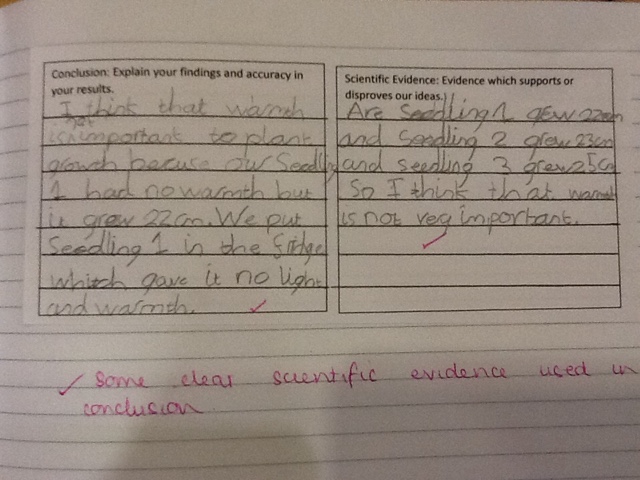 Conclusion: Explain your findings and accuracy in
your results.
I think that warmth
not
is important to plant
growth becuse our Seedling
1 had no warmth but
it grew 22cm. We put
Seedling 1 in the fridge
which gave it no light
and warmth.
Scientific Evidence: Evidence which supports or
disproves our ideas.
Are Seedling 1 grew 22cm
and Seedling 2 grew 23cm
and seedling 3 grew 25cm
So I think that warmth
is not vey important.
✓ Some clear scientific evidence used in
conclusion